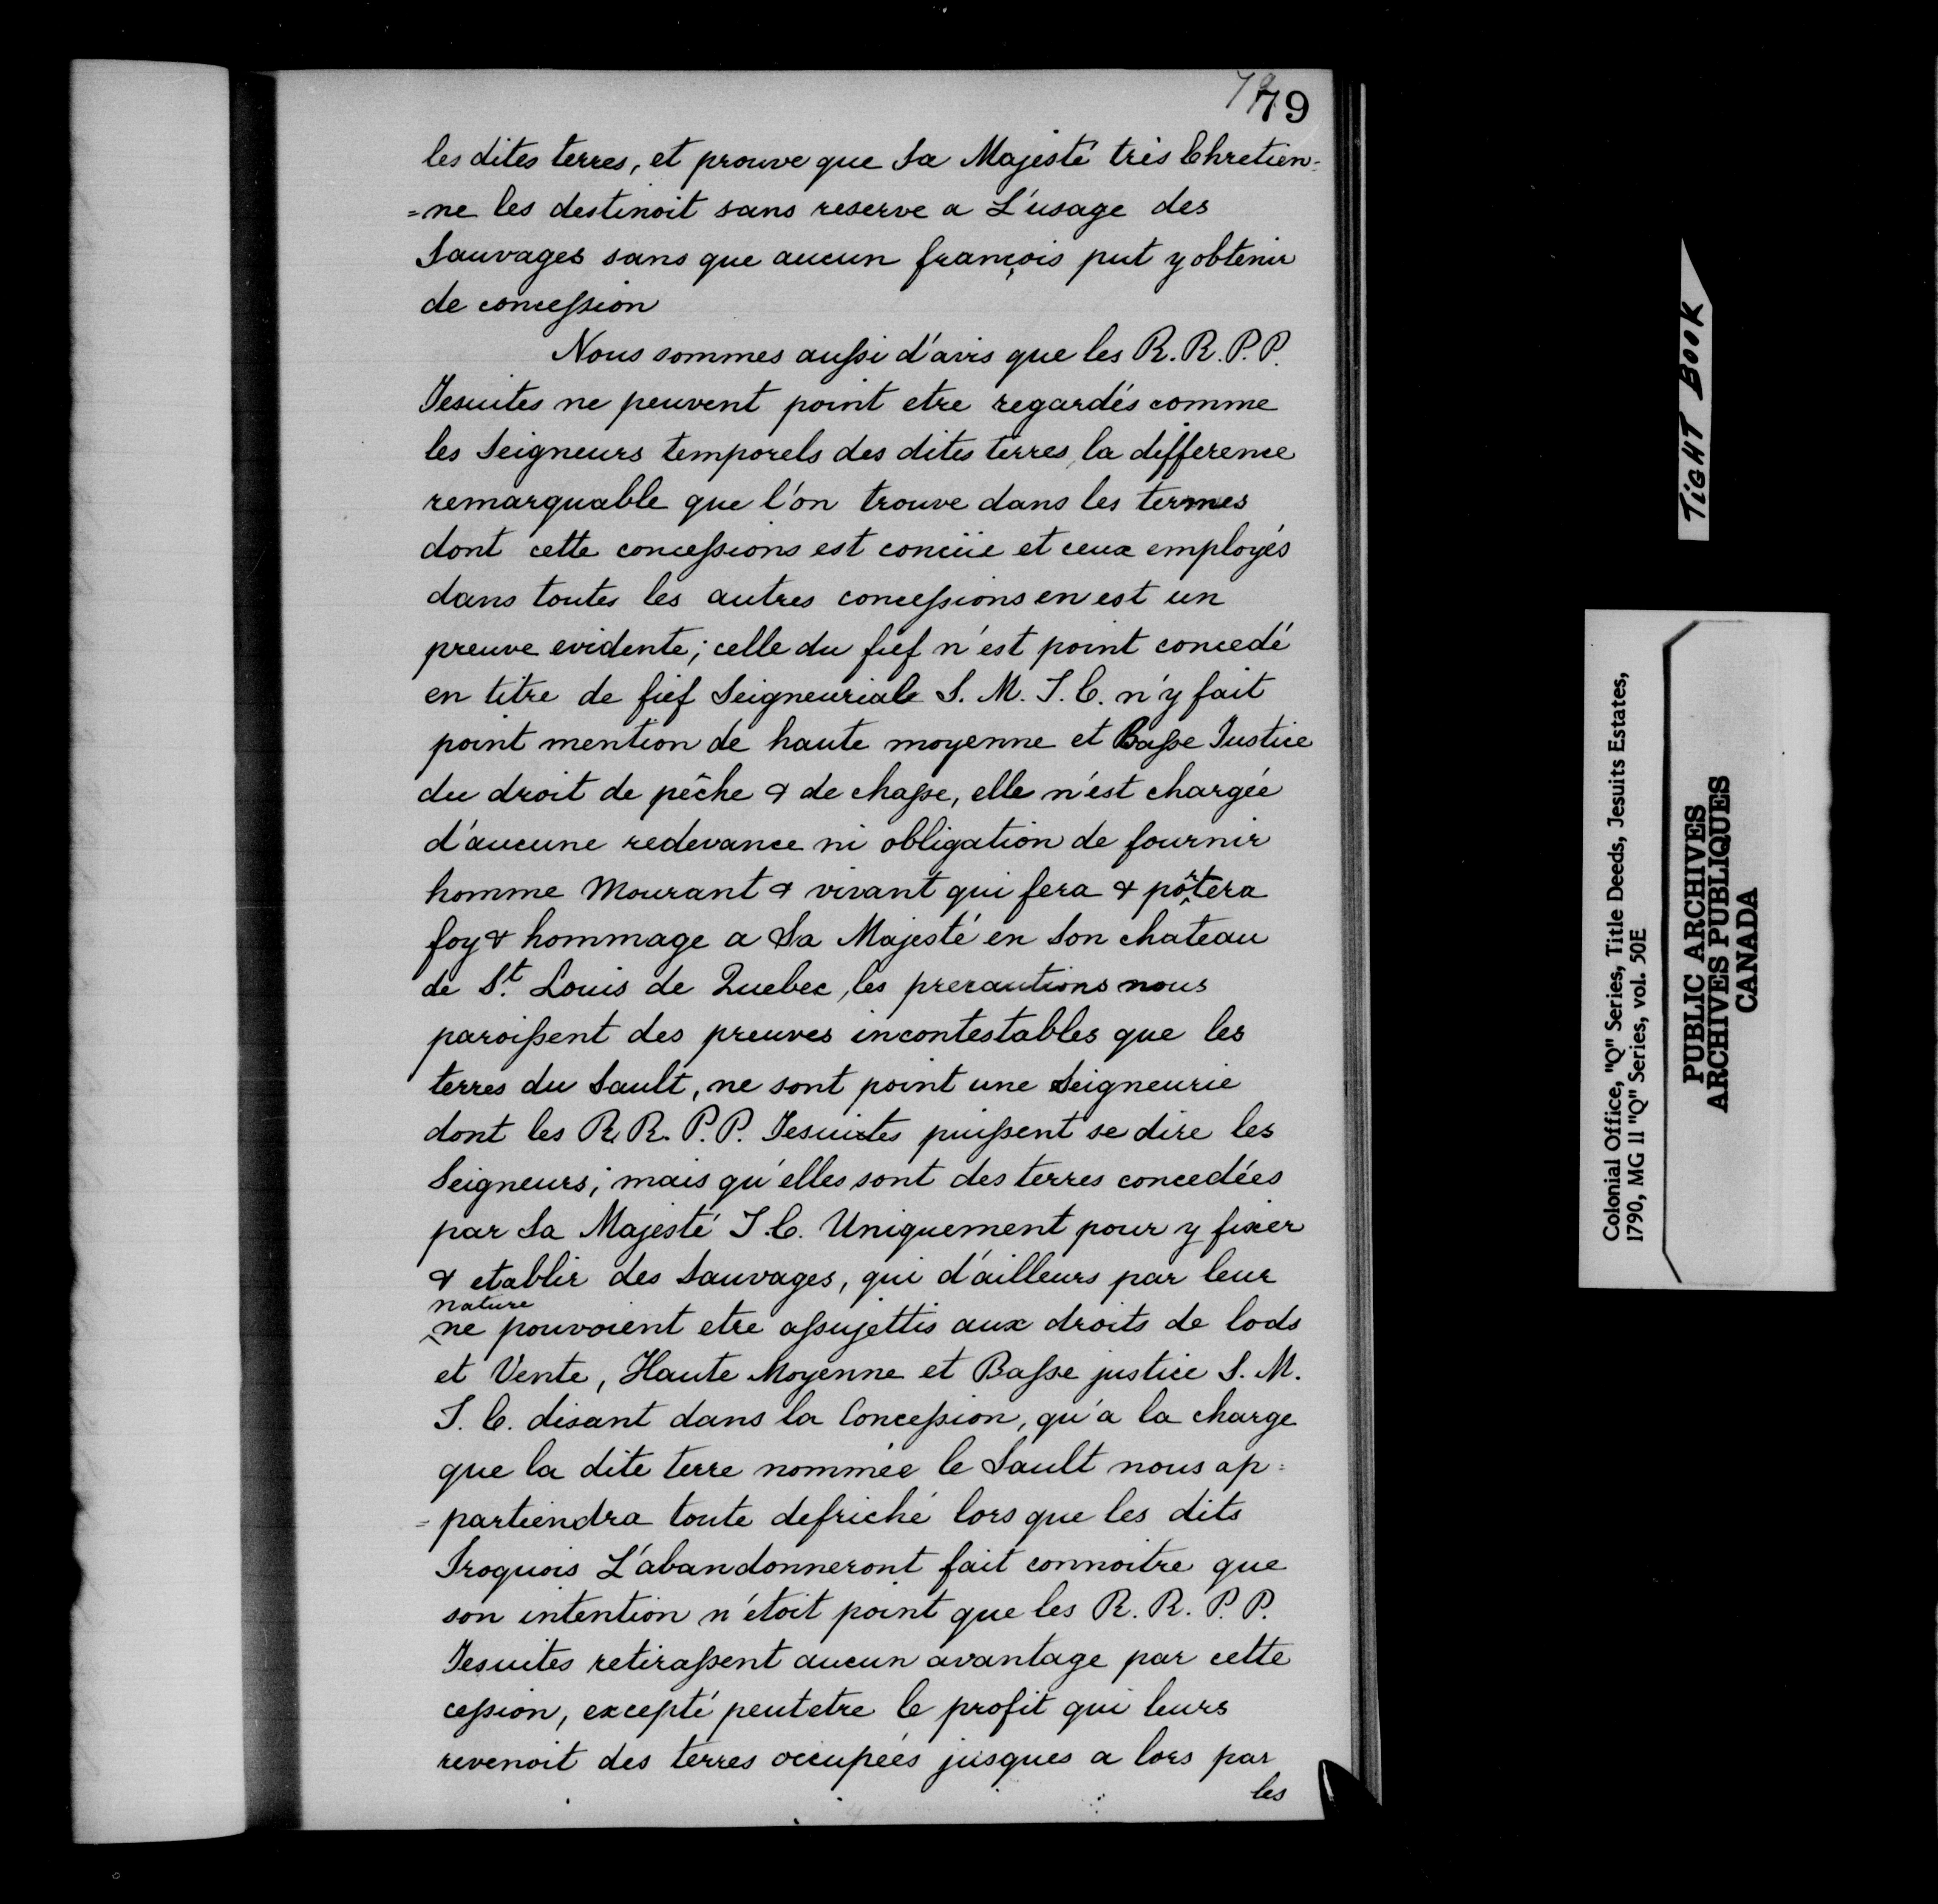 79
79
les dites terres, et prouve que Sa Majesté très Chretien-
=ne les destinoit sans reserve a L'usage des
Sauvages sans que aucun françois put y obtenir
de concession
Nous sommes aussi d'avis que les R. R. P. P.
Jesuites ne peuvent point etre regardés comme
les Seigneurs temporels des dites terres, la difference
remarquable que l'on trouve dans les termes
dont cette concessions est concüe et ceux employés
dans toutes les autres concessions en est un
preuve evidente; celle du fief n'est point concedé
en titre de fief Seigneuriale S. M. T. C. n'y fait
point mention de haute moyenne et Basse Justice
du droit de pêche & de chasse, elle n'est chargée
d'aucune redevance ni obligation de fournir
homme Mourant & vivant qui fera & portera
foy & hommage a Sa Majesté en Son chateau
de St. Louis de Quebec, les precautions nous
paroissent des preuves incontestables que les
terres du Sault, ne sont point une Seigneurie
dont les R. R. P. P. Jesuites puissent se dire les
Seigneurs; mais qu'elles sont des terres concedées
par Sa Majesté T. C. Uniquement pour y fixer
& etablir des Sauvages, qui d'ailleurs par leur
nature
ne pouvoient etre assujettis aux droits de lods
et Vente, Haute Moyenne et Basse justice S. M.
T. C. disant dans la Concession, qu'a la charge
que la dite terre nommée le Sault nous ap=
=partiendra toute defriché lors que les dits
Iroquois L'abandonneront fait connoitre que
son intention n'étoit point que les R. R. P. P.
Jesuites retirassent aucun avantage par cette
cession, excepté peutetre le profit qui leurs
revenoit des terres occupées jusques a lors par
les
TIGHT BOOK
Colonial Office, "Q" Series, Title Deeds, Jesuits Estates,
1790, MG 11 "Q" Series, vol. 50E
PUBLIC ARCHIVES
ARCHIVES PUBLIQUES
CANADA